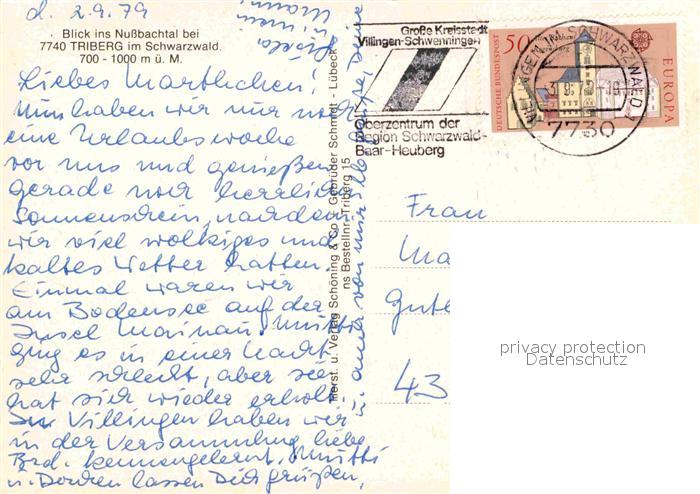 d. 2.9.79
Blick ins Nußbachtal bei
7740 TRIBERG im Schwarzwald.
700 - 1000 m ü. M.
Liebes Marthchen!
Nun haben wir nur noch
eine Urlaubswoche
vor uns und genießen
gerade noch herrlichen
Sonnenschein, nachdem
wir viel wolkiges und
kaltes Wetter hatten.
Einmal waren wir
am Bodensee auf der
Insel Mainau. Mutti
ging es in einer Nacht
sehr schlecht, aber sie
hat sich wieder erholt.
In Villingen haben wir
in der Versammlung liebe
Brd. kennengelernt, Mutti
u. Dorchen lassen Dich grüßen,
u. auch von mir Deine
Herst. u. Verlag Schöning & Co + Gebrüder Schmidt - Lübeck
ns Bestellnr. Triberg 15
Große Kreisstadt
Villingen-Schwenningen
Oberzentrum der
Region Schwarzwald-
Baar-Heuberg
DEUTSCHE BUNDESPOST
50
EUROPA
7730
Frau
Ma
Gute
43
privacy protection
Datenschutz